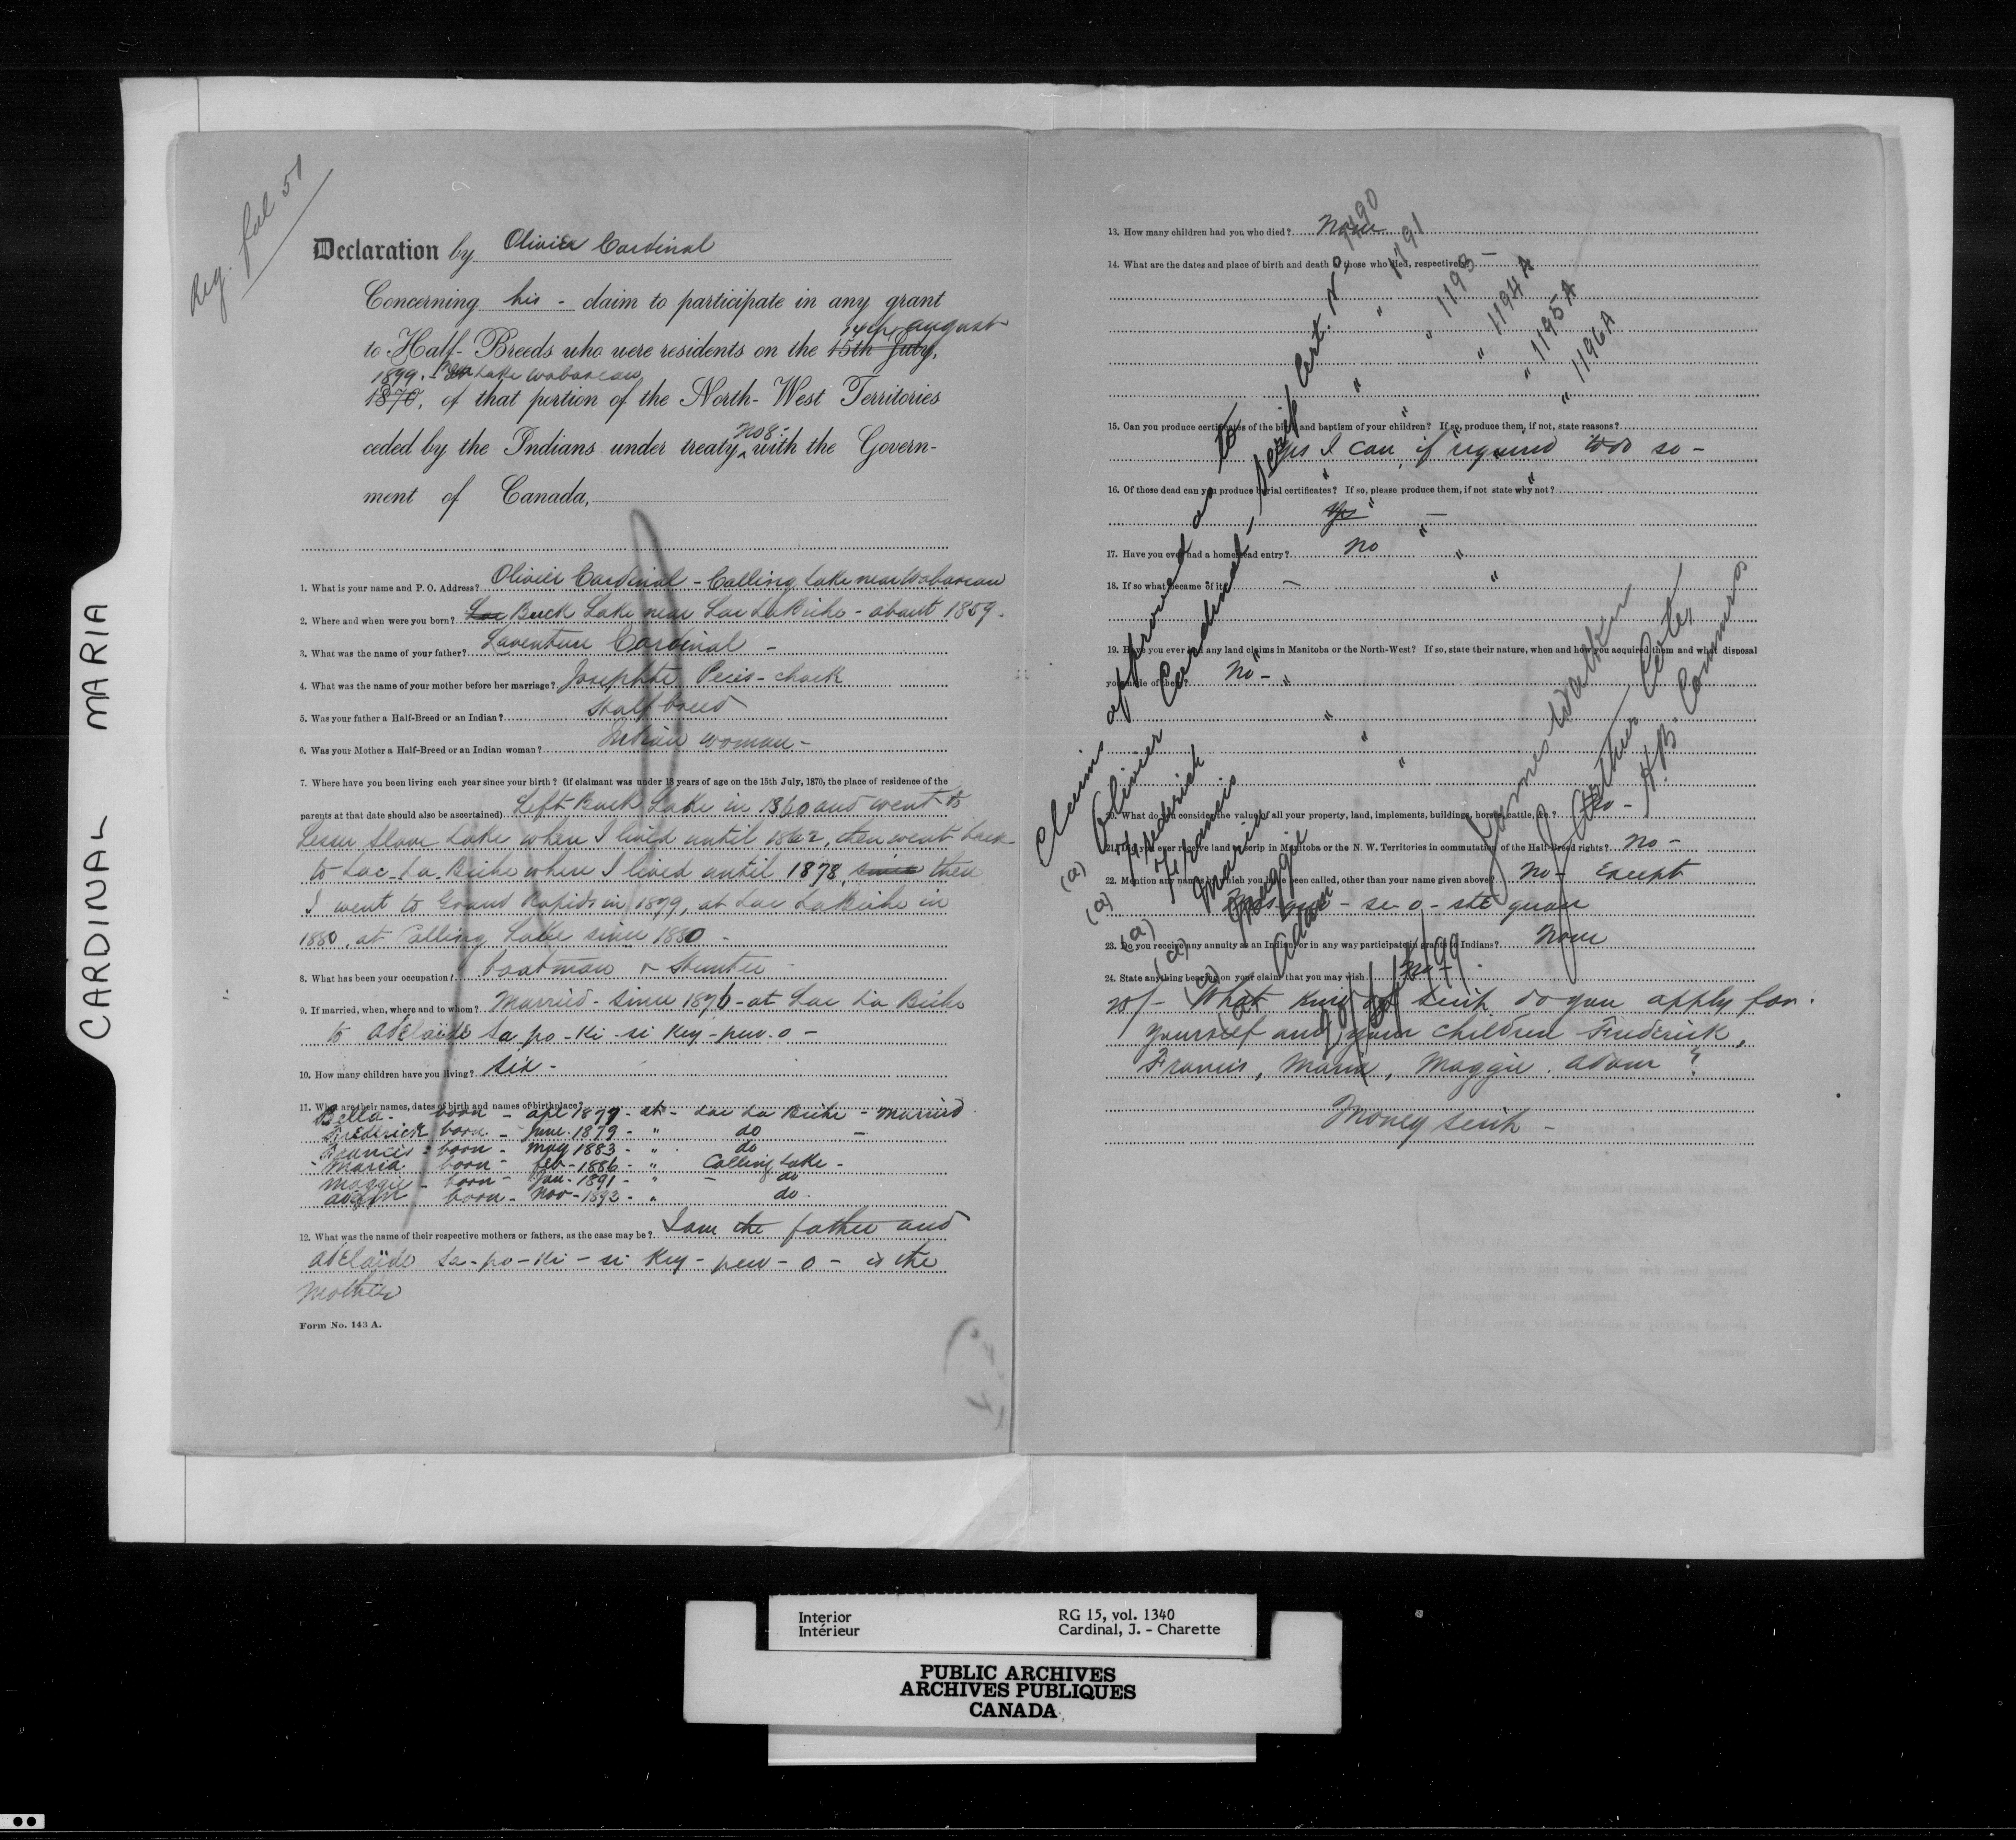 CARDINAL MARIA
Reg. fol 51
Declaration by Olivier Cardinal
Concerning his - claim to participate in any grant
14th august
to Half-Breeds who were residents on the 15th July,
1899. Lake Wabascaw
1870, of that portion of the North-West Territories
No 8-
ceded by the Indians under treaty ^ with the Govern-
ment of Canada,
1. What is your name and P. O. Address? Olivier Cardinal - Calling Lake near Wabascaw
2. Where and when were you born? Lac Buck Lake near Lac La Biche - about 1859.
3. What was the name of your father? Laventure Cardinal -
4. What was the name of your mother before her marriage? Josephte Peeis-chack
5. Was your father a Half-Breed or an Indian? Half breed
6. Was your Mother a Half-Breed or an Indian woman? Indian woman -
7. Where have you been living each year since your birth? (if claimant was under 18 years of age on the 15th July, 1870, the place of residence of the
parents at that date should also be ascertained) Left Buck Lake in 1860 and went to
Lesser Slave Lake where I lived until 1862, then went back
to Lac-La-Biche where I lived until 1878, since then
I went to Grand Rapids in 1879, at Lac La Biche in
1880, at Calling Lake since 1880 -
8. What has been your occupation? boatman & Hunter
9. If married, when, where and to whom? Married - since 1876 - at Lac La Biche
to Adelaïde Sa-po-ki-si-key-pew-o -
10. How many children have you living? Six -
11. What are their names, dates of birth and names of birthplace?
Bella - born - apl 1877 - at - Lac La Biche - married
Frederick born - June 1879 - " do -
Francis - born - may 1883 - " do
Maria born - feb - 1886 - " Calling Lake -
Maggie - born - Jan - 1891 - " - do
Adam born - Nov - 1892 - " do -
12. What was the name of their respective mothers or fathers, as the case may be? I am the father and
Adelaïde Sa-po-ki-si-key-pew-o - is the
Mother
Form No. 143 A.
13. How many children had you who died? None
14. What are the dates and place of birth and death of those who died, respectively?
15. Can you produce certificates of the birth and baptism of your children? If so, produce them, if not, state reasons?
Yes I can, if required to do so -
16. Of those dead can you produce burial certificates? If so, please produce them, if not state why not?
Yes -
17. Have you ever had a homestead entry? No
18. If so what became of it? -
19. Have you ever had any land claims in Manitoba or the North-West? If so, state their nature, when and how you acquired them and what disposal
you made of them? No -
20. What do you consider the value of all your property, land, implements, buildings, horses, cattle, &c.? No -
21. Did you ever receive land or scrip in Manitoba or the N. W. Territories in commutation of the Half-Breed rights? No -
22. Mention any names by which you have been called, other than your name given above? No - Except
- se-o-ste-quan
23. Do you receive any annuity as an Indian, or in any way participate in grants to Indians? None
24. State anything bearing on your claim that you may wish. No -
What kind of scrip do you apply for:
yourself and your children Frederick,
Francis, Maria, Maggie, Adam?
Money scrip -
Claims approved as to
(a) Olivier Cardinal, scrip Cert. No 1190
(a) Frederick " " " 1191
(a) Francis " " " 1193 -
(a) Maria " " " 1194 A
(a) Maggie " " " 1195 A
(a) Adam " " " 1196 A
James Walker
J. Arthur Coté,
H.B. Commrs
Interior
Intérieur
RG 15, vol. 1340
Cardinal, J. - Charette
PUBLIC ARCHIVES
ARCHIVES PUBLIQUES
CANADA